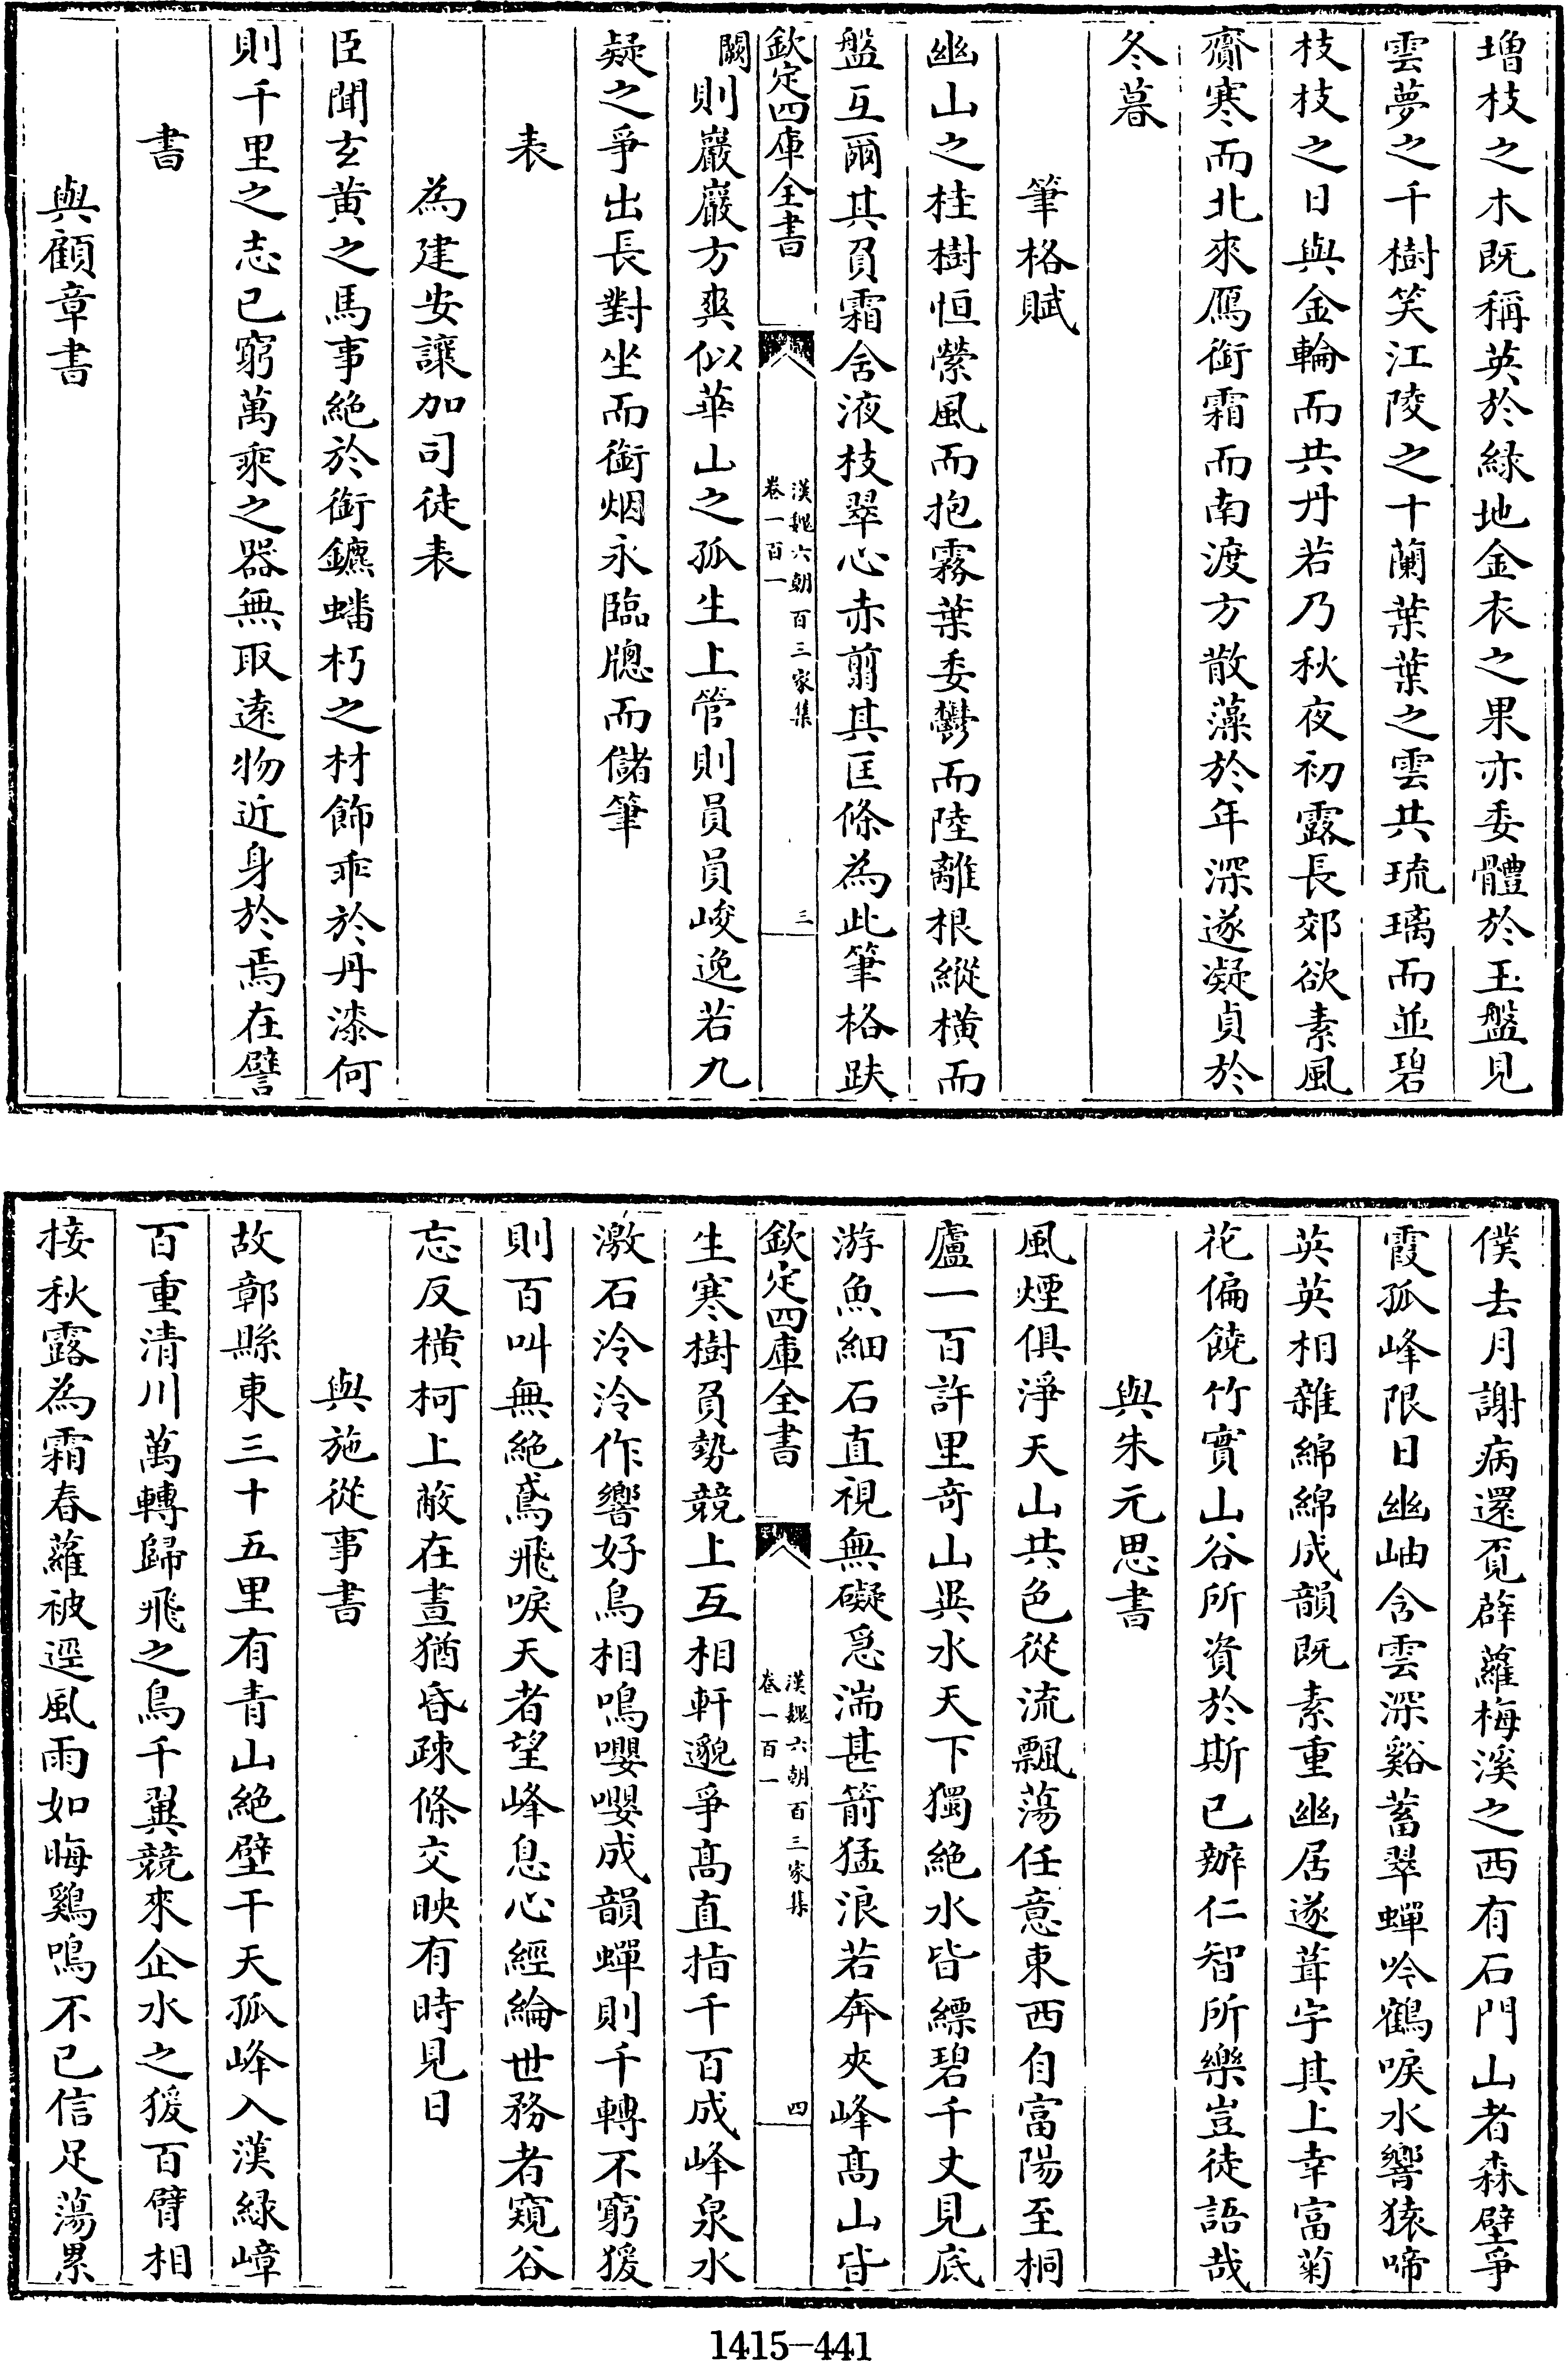 増枝之木既稱英於緑地金衣之果亦委體於玉盤見
雲夢之千樹笑江陵之十蘭葉葉之雲共琉璃而並碧
枝枝之日與金輪而共丹若乃秋夜初露長郊欲素風
齎寒而北來鴈銜霜而南渡方散藻於年深遂凝貞於
冬暮
筆格賦
幽山之桂樹恒縈風而抱霧葉委鬱而陸離根縱橫而
盤互爾其負霜含液枝翠心赤翦其匡條為此筆格趺
欽定四庫全書
漢魏六朝百三家集
卷一百一
三
闕則巖巖方爽似華山之孤生上管則員員峻逸若九
疑之爭出長對坐而銜烟永臨牕而儲筆
表
為建安讓加司徒表
臣聞玄黄之馬事絶於銜鑣蟠朽之材飾乖於丹漆何
則千里之志已窮萬乘之器無取遠物近身於焉在譬
書
與顧章書
僕去月謝病還覓薜蘿梅溪之西有石門山者森壁爭
霞孤峰限日幽岫含雲深谿蓄翠蟬吟鶴唳水響猿啼
英英相雜綿綿成韻既素重幽居遂葺宇其上幸富菊
花偏饒竹實山谷所資於斯已辦仁智所樂豈徒語哉
與朱元思書
風煙俱淨天山共色從流飄蕩任意東西自富陽至桐
廬一百許里奇山異水天下獨絶水皆縹碧千丈見底
游魚細石直視無礙急湍甚箭猛浪若奔夾峰髙山皆
欽定四庫全書
漢魏六朝百三家集
卷一百一
四
生寒樹負勢競上互相軒邈爭髙直指千百成峰泉水
激石泠泠作響好鳥相鳴嚶嚶成韻蟬則千轉不窮猨
則百叫無絶鳶飛唳天者望峰息心經綸世務者窺谷
忘反橫柯上蔽在晝猶昏疎條交映有時見日
與施從事書
故鄣縣東三十五里有青山絶壁干天孤峰入漢緑嶂
百重清川萬轉歸飛之鳥千翼競來企水之猨百臂相
接秋露為霜春蘿被逕風雨如晦鷄鳴不已信足蕩累
1415-441